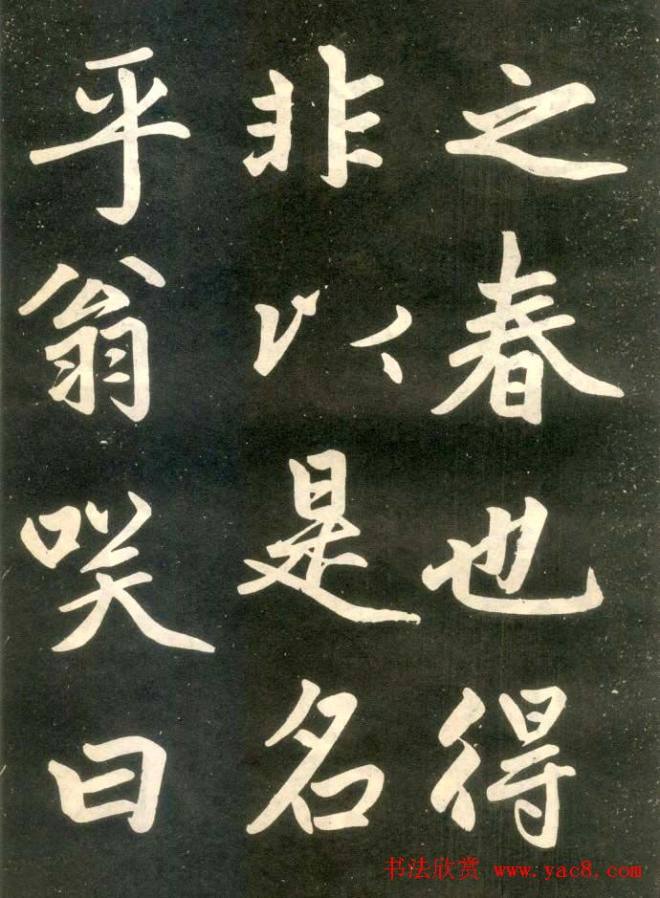 之春也得
非以是名
乎翁咲曰
书法欣赏 www.yac8.com